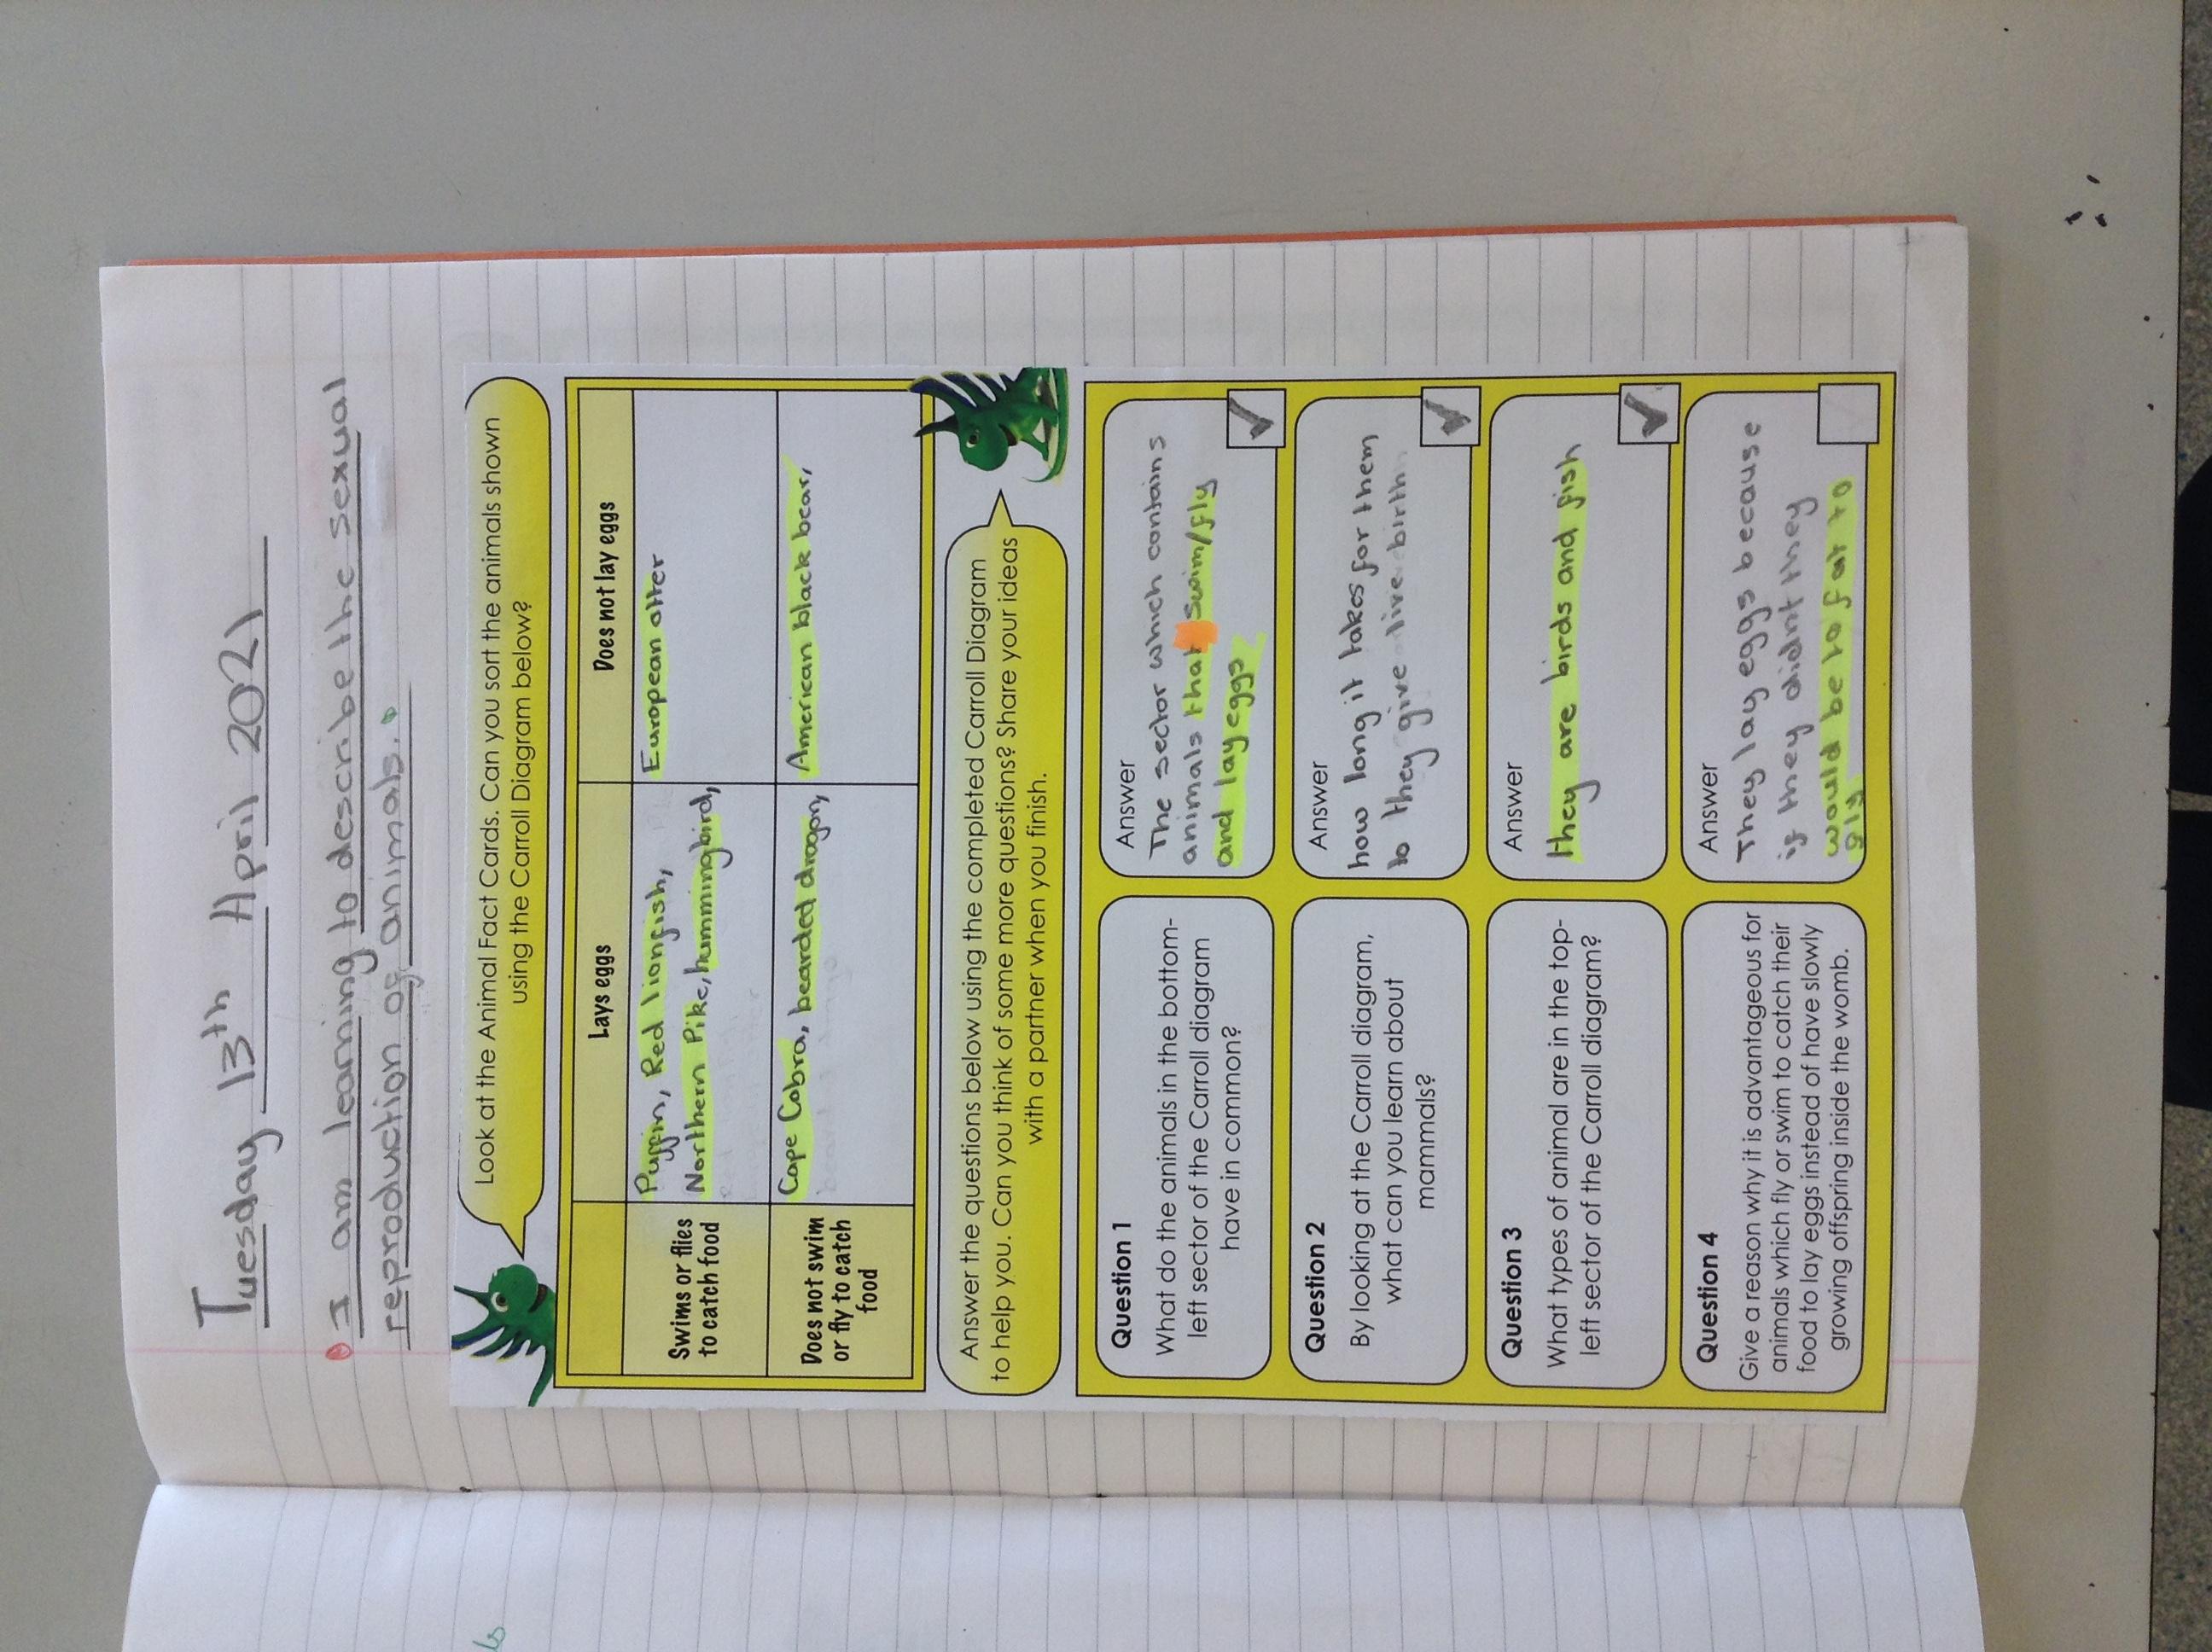 Tuesday 13th April 2021
I am learning to describe the sexual
reproduction of animals.
Look at the Animal Fact Cards. Can you sort the animals shown
using the Carroll Diagram below?
Lays eggs
Does not lay eggs
Swims or flies
to catch food
Puffin, Red lionfish,
Northern Pike, hummingbird,
European otter
Does not swim
or fly to catch
food
Cape Cobra, bearded dragon,
American black bear,
Answer the questions below using the completed Carroll Diagram
to help you. Can you think of some more questions? Share your ideas
with a partner when you finish.
Question 1
What do the animals in the bottom-
left sector of the Carroll diagram
have in common?
Answer
The sector which contains
animals that swim/fly
and lay eggs
Question 2
By looking at the Carroll diagram,
what can you learn about
mammals?
Answer
how long it takes for them
to they give live birth
Question 3
What types of animal are in the top-
left sector of the Carroll diagram?
Answer
they are birds and fish
Question 4
Give a reason why it is advantageous for
animals which fly or swim to catch their
food to lay eggs instead of have slowly
growing offspring inside the womb.
Answer
They lay eggs because
if they didnt they
would be to fat to
fly